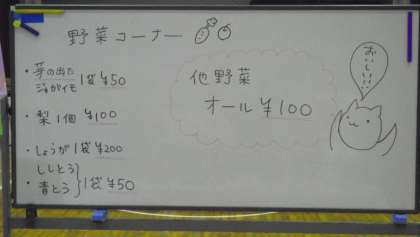 野菜コーナー
・芽の出た
ジャガイモ 1袋 ¥50
・梨 1個 ¥100
・しょうが 1袋 ¥200
・ししとう
・青とう 1袋 ¥50
他野菜
オール ¥100
おいしい!!